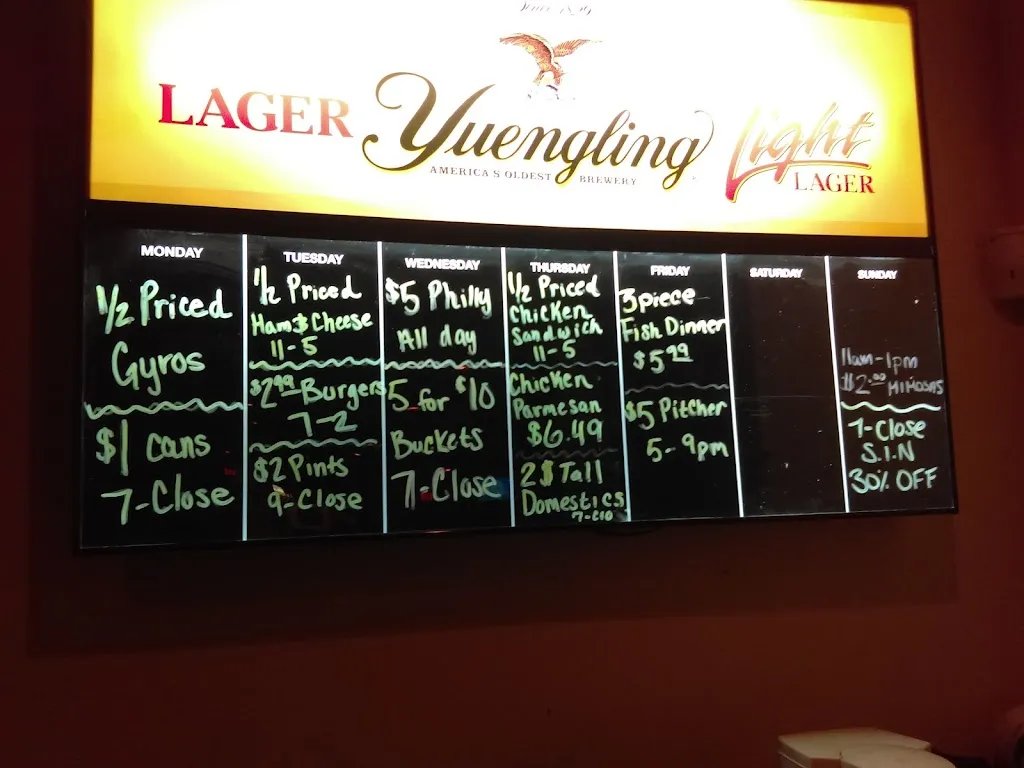 LAGER
Yuengling
AMERICA'S OLDEST BREWERY
Light
LAGER
MONDAY
1/2 Priced
Gyros
$1 cans
7-Close
TUESDAY
1/2 Priced
Ham $ Cheese
11-5
$2.99 Burgers
7-2
$2 Pints
9-Close
WEDNESDAY
$5 Philly
All day
5 for $10
Buckets
7-Close
THURSDAY
1/2 Priced
Chicken
Sandwich
11-5
Chicken
Parmesan
$6.49
2$ Tall
Domestics
7-clo
FRIDAY
3 piece
Fish Dinner
$5.99
$5 Pitcher
5-9pm
SATURDAY
SUNDAY
11am-1pm
$2.00 Mimosas
7-Close
S.I.N
30% OFF